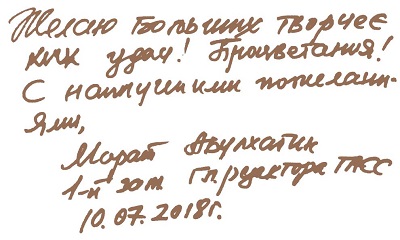 Желаю больших творчес
ких удач! Процветания!
С наилучшими пожелани-
ями,
Марат Абулхатин
1-й зам гл. редактора ТАСС
10.07.2018г.